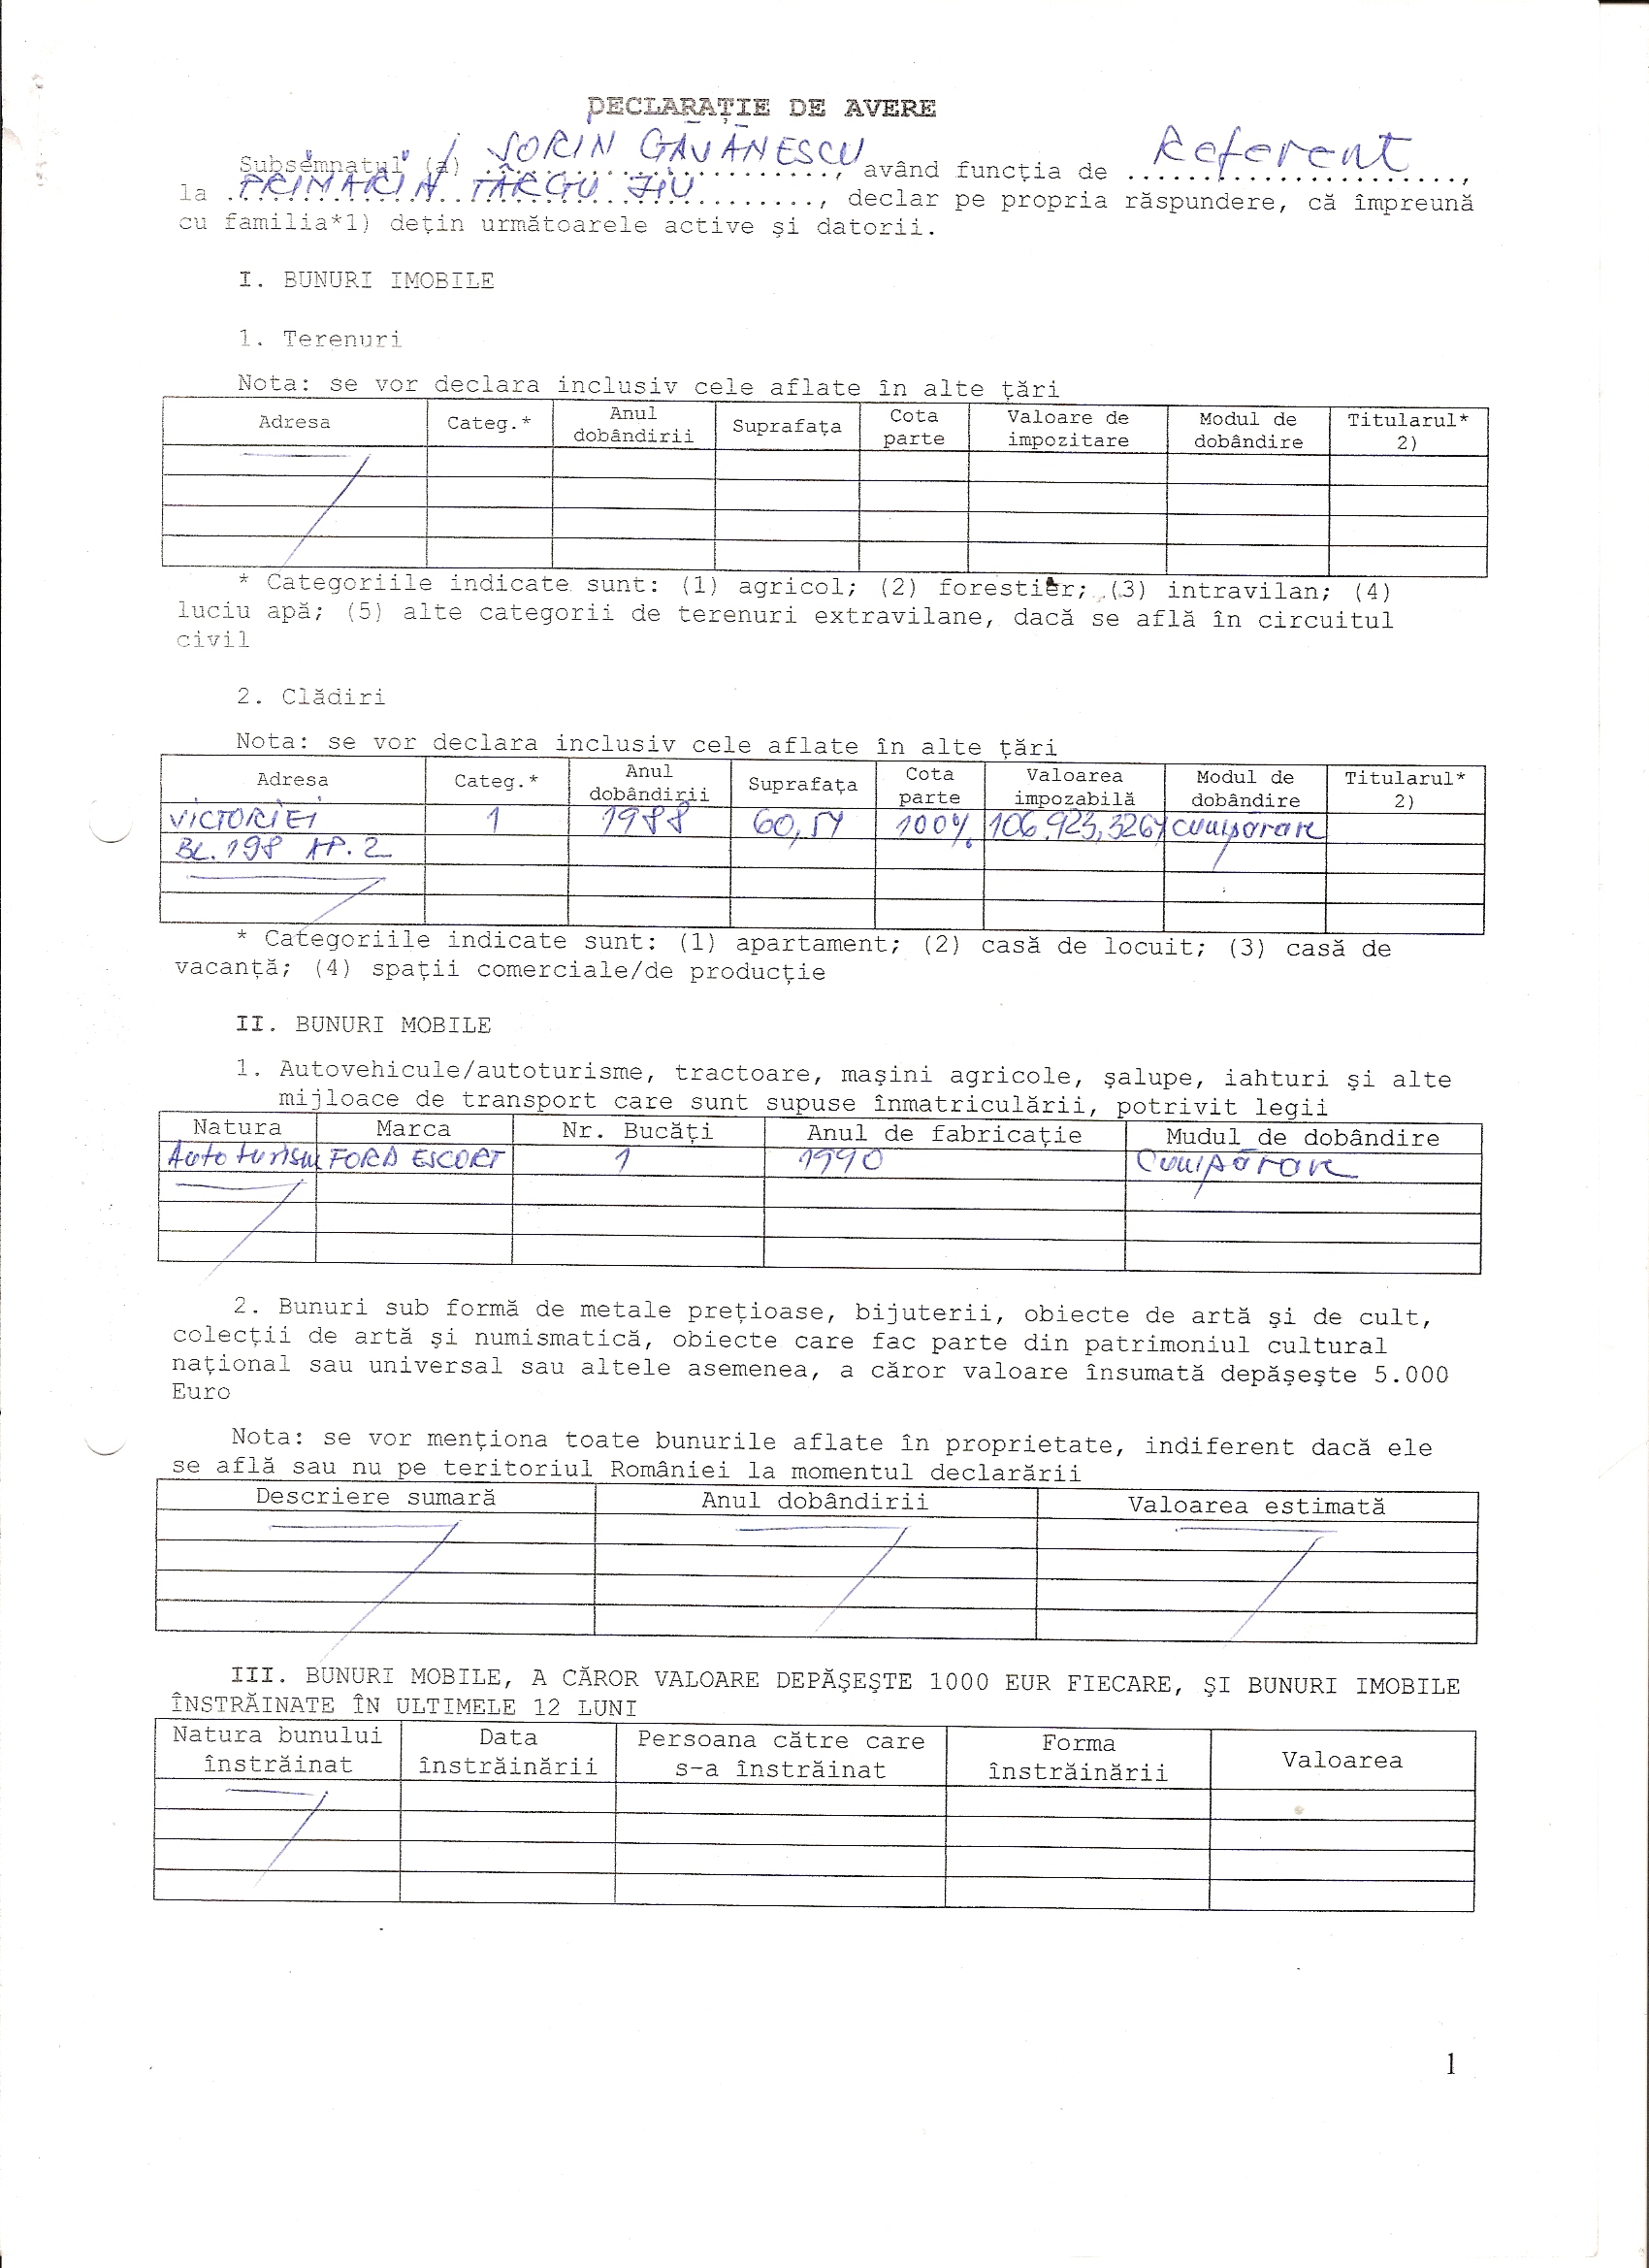 DECLARAŢIE DE AVERE
Subsemnatul (a) SORIN GĂVĂNESCU, având funcţia de Referent,
la PRIMĂRIA TÂRGU JIU, declar pe propria răspundere, că împreună
cu familia*1) deţin următoarele active şi datorii.
I. BUNURI IMOBILE
1. Terenuri
Nota: se vor declara inclusiv cele aflate în alte ţări
Adresa Categ.* Anul dobândirii Suprafaţa Cota parte Valoare de impozitare Modul de dobândire Titularul* 2)
* Categoriile indicate sunt: (1) agricol; (2) forestier; (3) intravilan; (4)
luciu apă; (5) alte categorii de terenuri extravilane, dacă se află în circuitul
civil
2. Clădiri
Nota: se vor declara inclusiv cele aflate în alte ţări
Adresa Categ.* Anul dobândirii Suprafaţa Cota parte Valoarea impozabilă Modul de dobândire Titularul* 2)
VICTORIEI 1 1988 60,54 100% cumpărare
BL. 198 AP. 2
* Categoriile indicate sunt: (1) apartament; (2) casă de locuit; (3) casă de
vacanţă; (4) spaţii comerciale/de producţie
II. BUNURI MOBILE
1. Autovehicule/autoturisme, tractoare, maşini agricole, şalupe, iahturi şi alte
mijloace de transport care sunt supuse înmatriculării, potrivit legii
Natura Marca Nr. Bucăţi Anul de fabricaţie Mudul de dobândire
Autoturism FORD ESCORT 1 1990 Cumpărare
2. Bunuri sub formă de metale preţioase, bijuterii, obiecte de artă şi de cult,
colecţii de artă şi numismatică, obiecte care fac parte din patrimoniul cultural
naţional sau universal sau altele asemenea, a căror valoare însumată depăşeşte 5.000
Euro
Nota: se vor menţiona toate bunurile aflate în proprietate, indiferent dacă ele
se află sau nu pe teritoriul României la momentul declarării
Descriere sumară Anul dobândirii Valoarea estimată
III. BUNURI MOBILE, A CĂROR VALOARE DEPĂŞEŞTE 1000 EUR FIECARE, ŞI BUNURI IMOBILE
ÎNSTRĂINATE ÎN ULTIMELE 12 LUNI
Natura bunului înstrăinat Data înstrăinării Persoana către care s-a înstrăinat Forma înstrăinării Valoarea
1